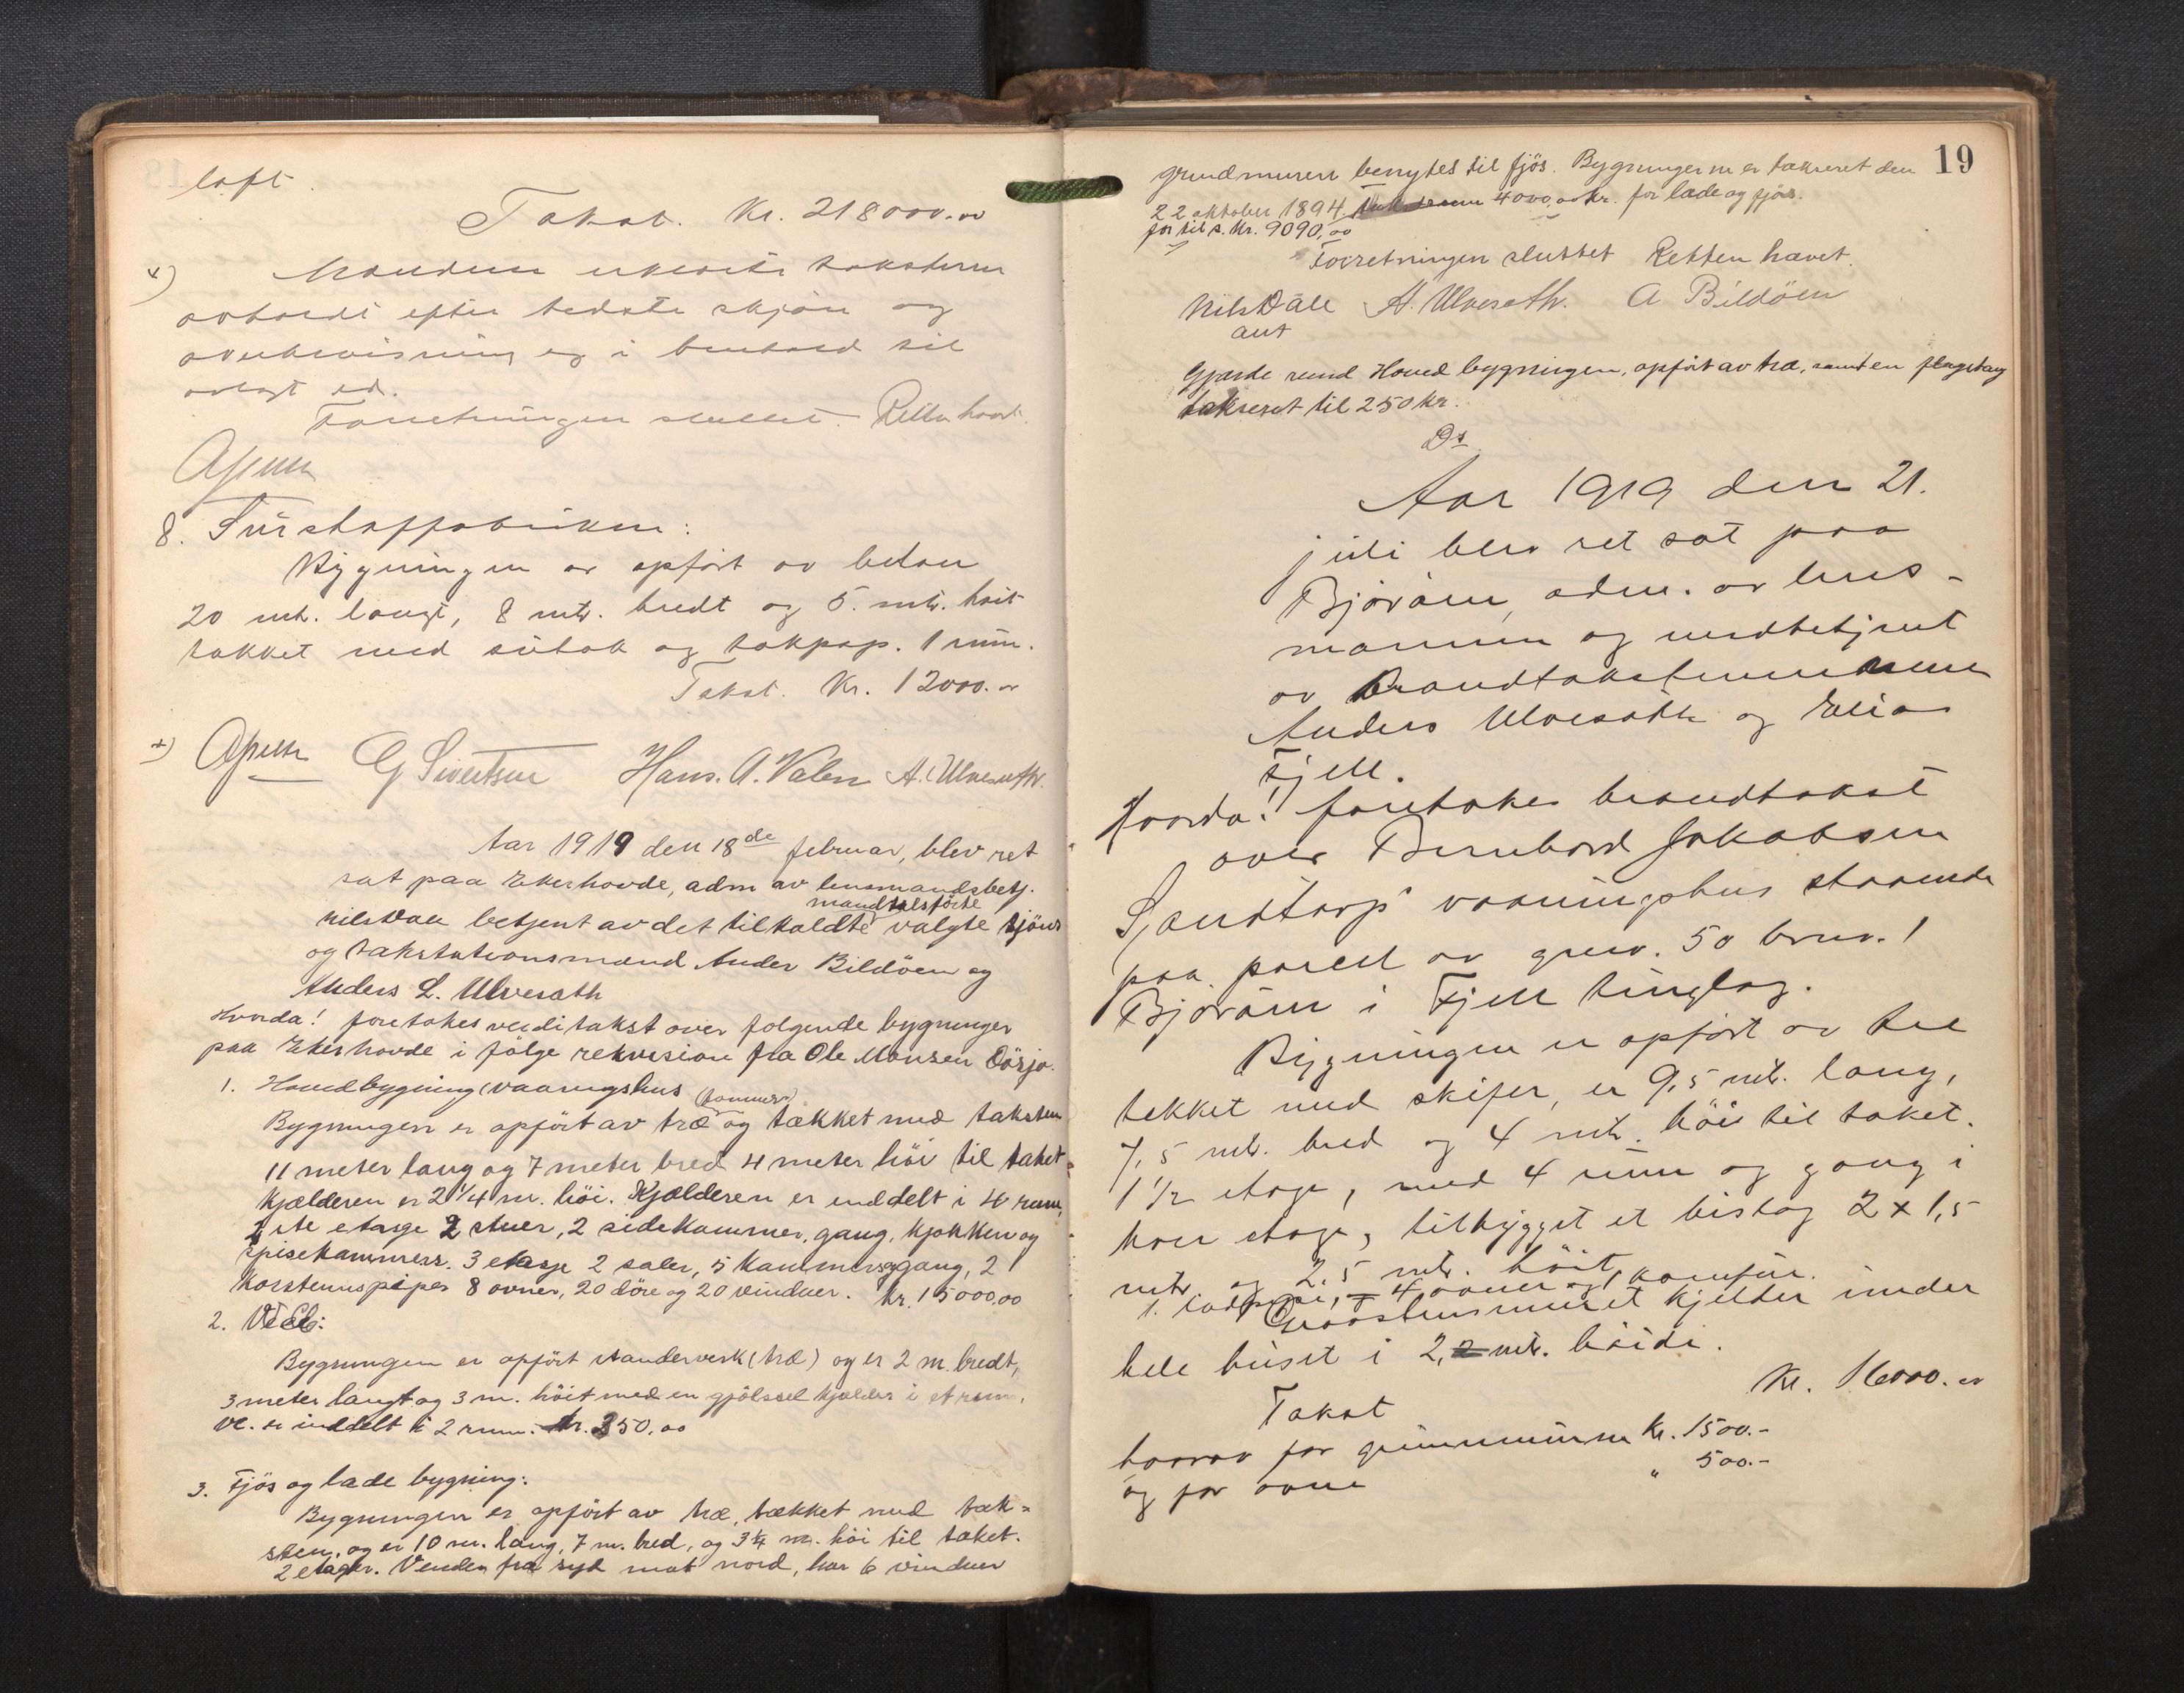 loft.
Takst. Kr. 218000.00
x) Mændene erklærte taksterne
avholdt efter bedste skjøn og
overbevisning og i henhold til
avlagt ed.
Forretningen sluttet. Retten hævet.
8. Fôrstoffabrikken:
Bygningen er opført av beton
20 mtr. langt, 8 mtr. bredt og 5. mtr. høit
tækket med sutak og takpap. 1 rum.
Takst. Kr. 12000.00
x) G Sivertsen Hans. A. Valen A. Ulvesæth.
Aar 1919 den 18de februar, blev ret
sat paa Ekerhovde, adm av lensmandsbetj.
mandtalsførte
Nils Dale betjent av det tilkaldte valgte skjøns
og takstationsmænd Ander Bildöen og
Anders L. Ulvesæth
Hvorda! foretokes verditakst over følgende bygninger
paa Ekerhovde i følge rekvision fra Ole Monsen Dösjø.
1. Hovedbygning (vaaningshus
(tømmer)
Bygningen er opført av træ og tækket med taksten
11 meter lang og 7 meter bred 4 meter höi til taket
Kjælderen er 2 1/4 m. höi. Kjælderen er inddelt i 4 rum,
1ste etasge 2 stuer, 2 sidekammer, gang, kjøkken og
spisekammers. 3 etasje 2 saler, 5 kammers og gang, 2
korstenspiper 8 ovner, 20 döre og 20 vinduer. Kr. 15000,00
2.
Bygningen er opført standerverk (træ) og er 2 m. bredt,
3 meter langt og 3 m. höit med en gjødsel kjælder i et rum.
Vc. er inddelt i 2 rum. Kr. 350,00
3. Fjös og lade bygning:
Bygningen er opført av træ, tækket med tak-
sten, og er 10 m. lang, 7 m. bred, og 3 1/4 m. höi til taket.
2 etager. Vender fra syd mot nord, har 6 vinduer
19
grundmuren benyttes til fjös. Bygningerne er takseret den
22 oktober 1894 4000,00 kr. for lade og fjös.
for til s. Kr. 9090,00
Forretningen sluttet Retten hævet.
Nils Dale A. Ulvesæth. A Bildöen
aut
Gjærde rund Hovedbygningen, opført av træ, samt en flagstang
takseret til 250 kr.
Ds
Aar 1919 den 21.
juli blev ret sat paa
Bjørøen, adm. av lens-
manden og medbetjent
av Brandtakstmændene
Anders Ulvesæth og Elias
Fjell.
Hvorda! foretokes brandtakst
over Bernhard Jakobsen
Sandtorp's vaaningshus staaende
paa parcel av grnr. 50 brnr. 1
Bjørøen i Fjell tinglag.
Bygningen er opført av træ
tekket med skifer, er 9,5 mtr. lang,
7,5 mtr. bred og 4 mtr. höi til taket.
1 1/2 etage, med 4 rum og gang i
hver etage, tilbygget et bislag 2 x 1,5
mtr og 2,5 mtr. höit,
4 ovner og 1 komfur.
Graastensmuret kjelder under
hele huset i 2,2 mtr. höide.
Takst Kr. 16000.00
hvorav for grunmurene Kr. 1500.-
og for ovne " 500.-